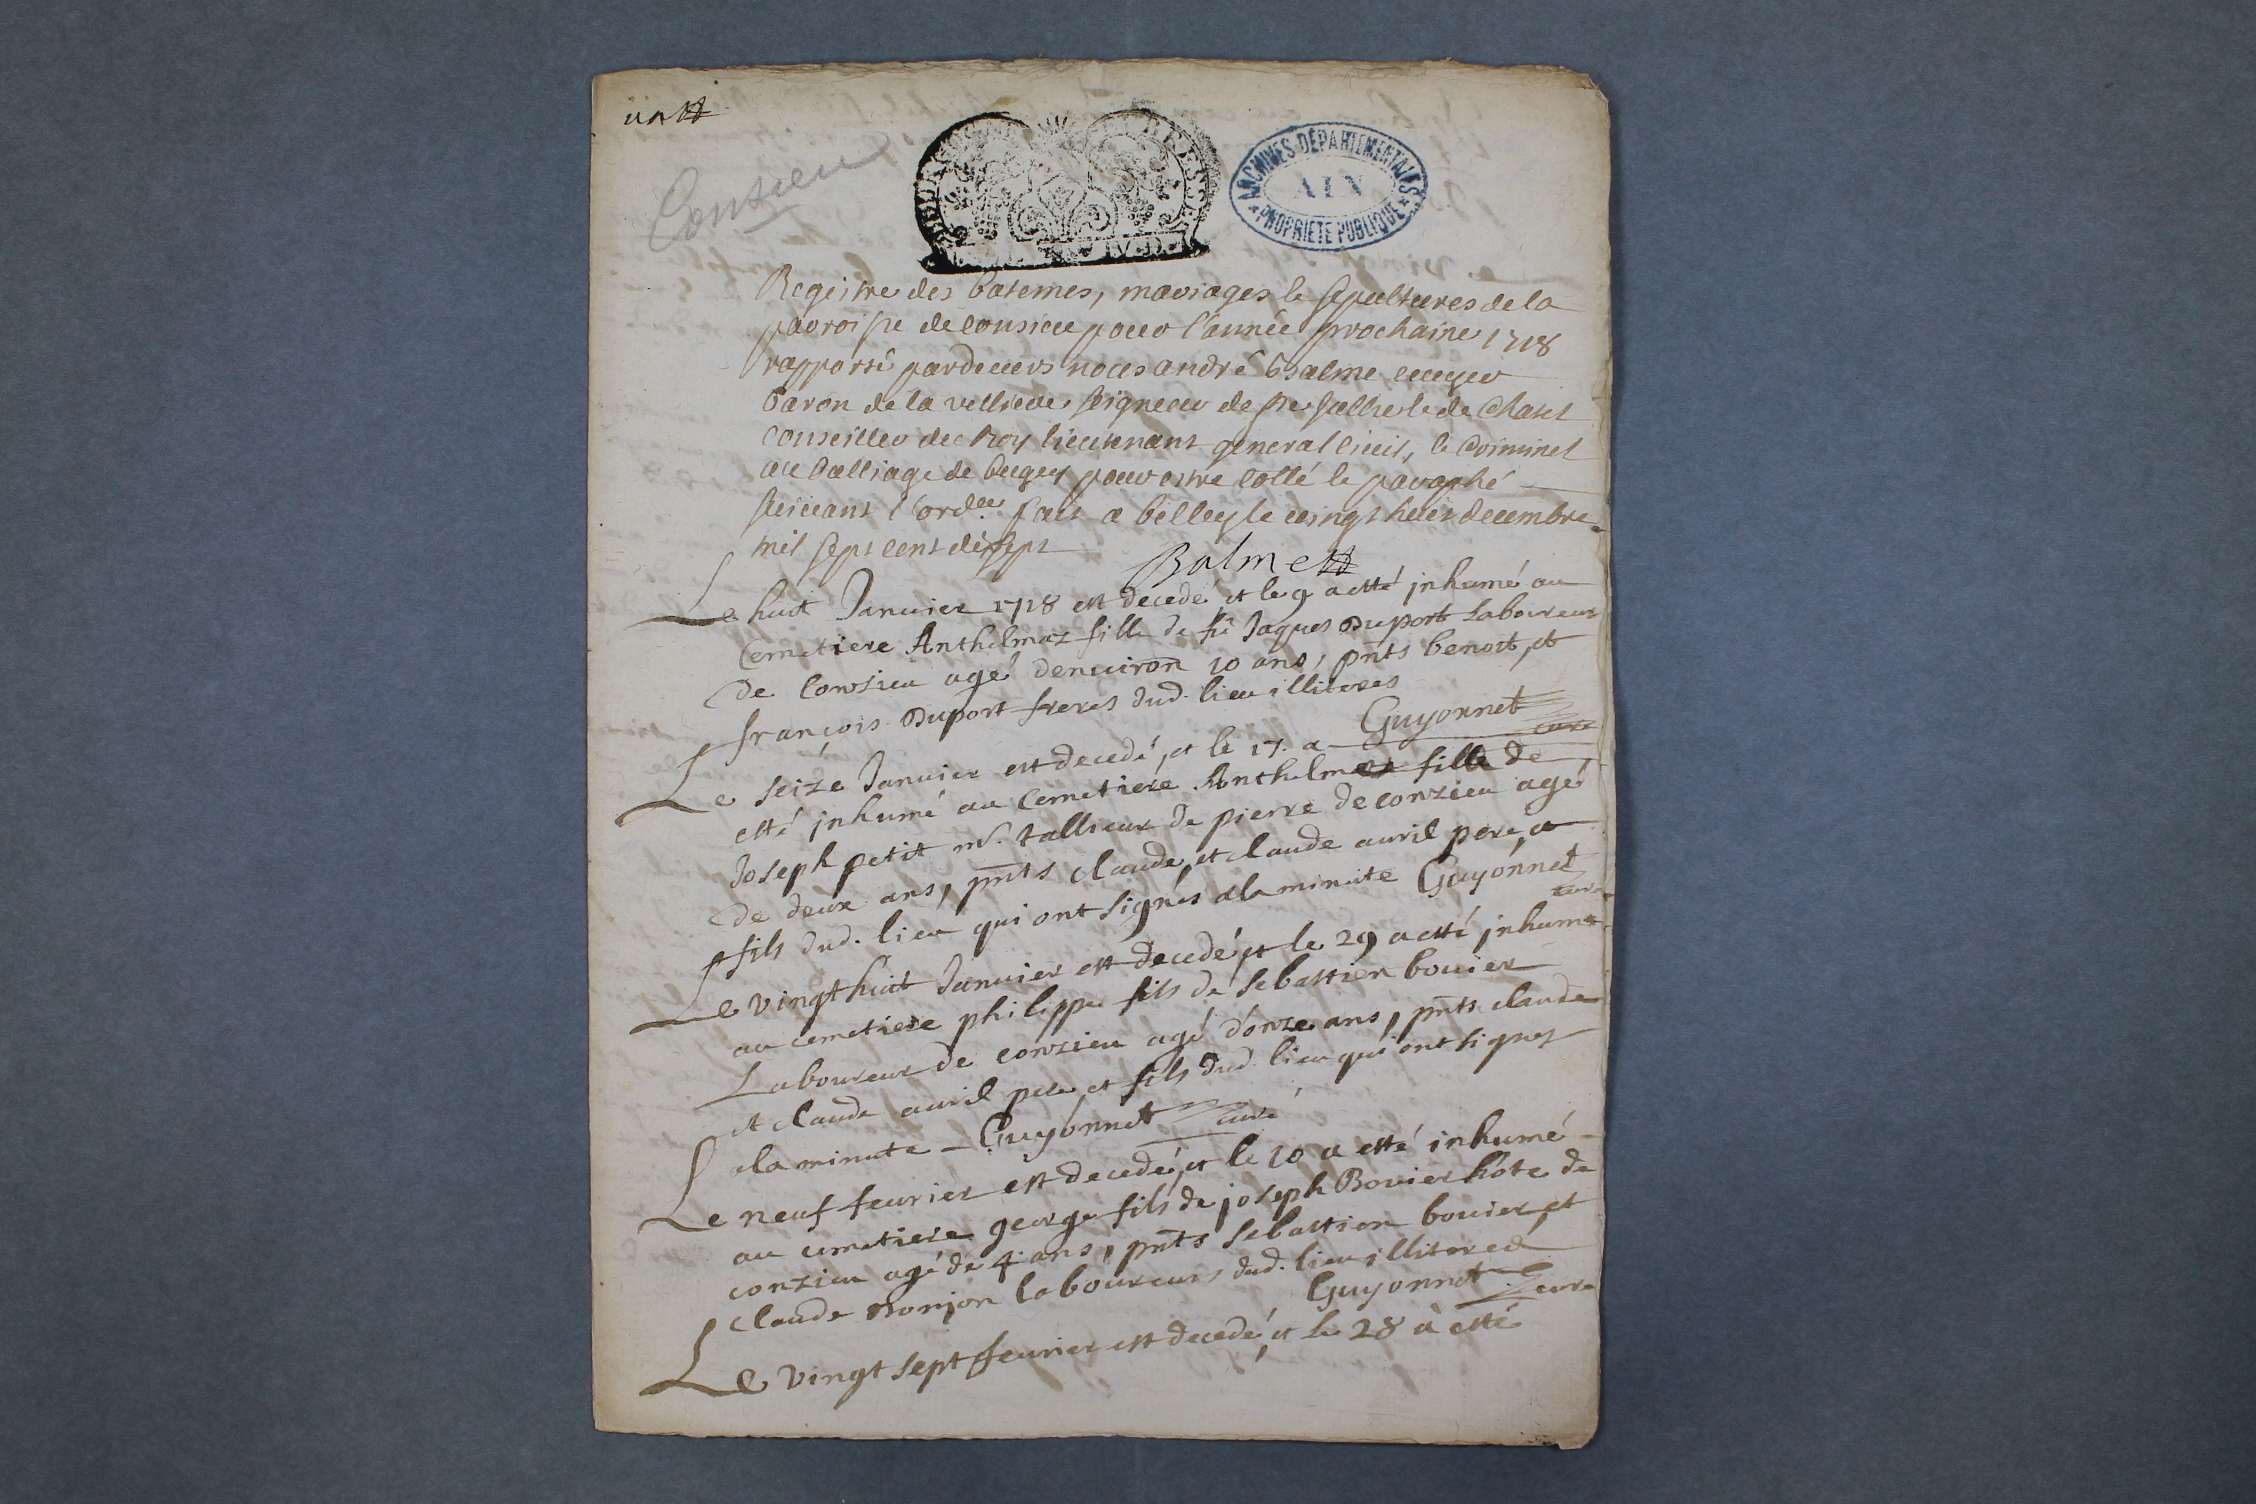 un
Conzieu
ARCHIVES DÉPARTEMENTALES
AIN
PROPRIETE PUBLIQUE
Registre des batemes, mariages le sepultures de la
parroisse de Consieu pour l'année prochaine 1718
rapporté pardevers nous andré Balme ecuyer
baron de la vellieve seigneur de Ste Jullie le de Chatet
conseiller du Roy lieutenant general civil, le criminel
au balliage de bugey pour estre cotté le paraphé
suivant l'ordce fait a belley le vingt huit decembre
mil sept cent dixsept
Balme
Le huit Januier 1718 est decedé et le 9 a etté jnhumé au
Cemetiere Anthelmaz fille de fû Jaques Duport Laboureur
de Conzieu agé denuiron 10 ans, pñts benoit, et
françois Duport freres dud. lieu illiteres
Guyonnet curé
Le seize Januier est decedé, et le 17. a
etté jnhumé au Cemetiere Anthelmaz fille de
Joseph petit mr. tallieur de pierre de conzieu agé
de deux ans, pñts claude, et claude auril pere, et
fils dud. lieu qui ont signés a la minute Guyonnet
curé
Le vingt huit Januier est decedé, et le 29 a etté jnhumé
au cemetiere philippe fils de Sebattien bouier
Laboureur de conzieu agé d'onze ans, pñts claude
et claude auril pere, et fils dud. lieu qui ont signes
a la minute - Guyonnet curé
Le neuf feurier est decedé, et le 10 a etté inhumé
au cemetiere george fils de joseph Bouier hôte de
conzieu agé de 4 ans, pñts Sebattien bouier, et
claude Bonjon laboureurs dud. lieu illiteres
Guyonnet curé
Le vingt sept feurier est decedé, et le 28 à etté